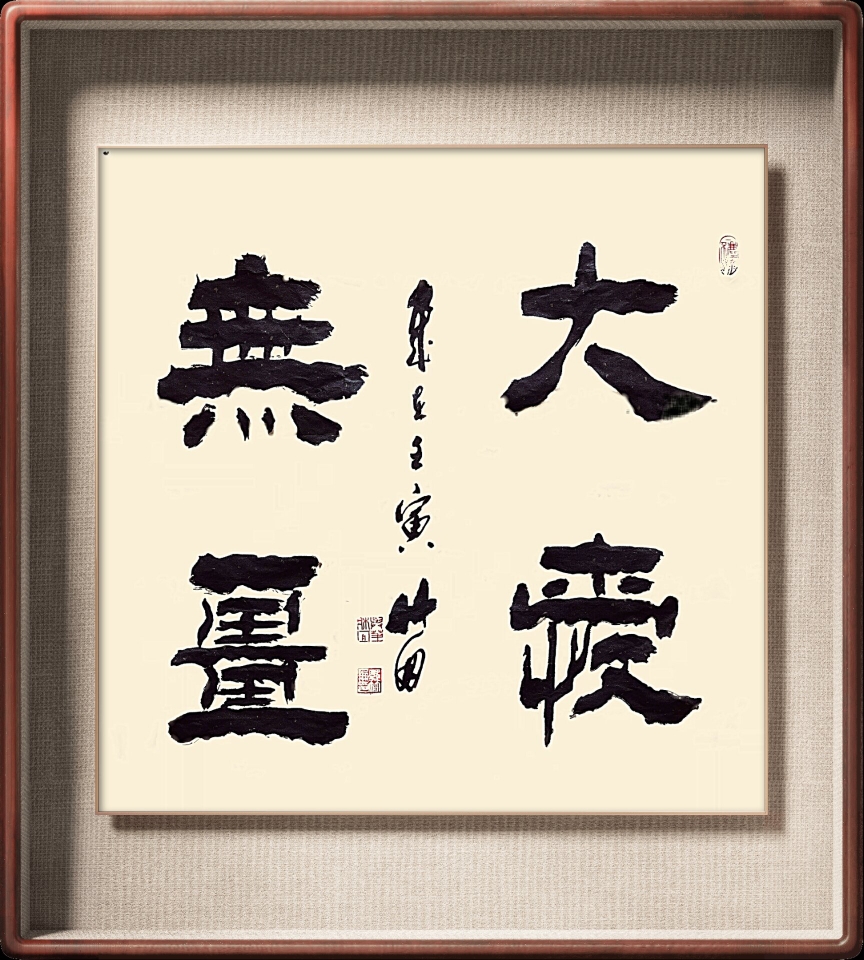 大愛
無畺
歲在壬寅